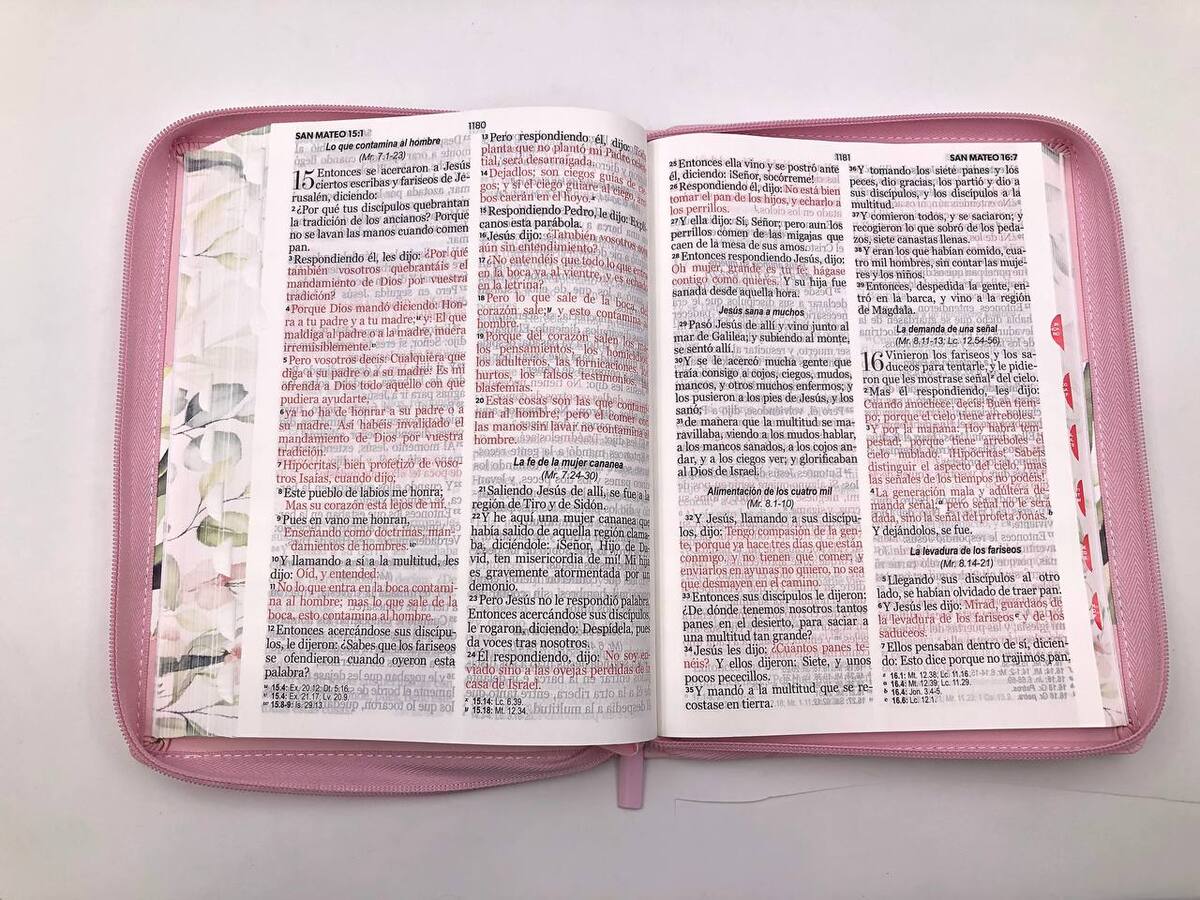 SAN MATEO 15:1
1180
Lo que contamina al hombre
(Mr. 7.1-23)
15 Entonces se acercaron a Jesús
ciertos escribas y fariseos de Je-
rusalén, diciendo:
2 ¿Por qué tus discípulos quebrantan
la tradición de los ancianos? Porque
no se lavan las manos cuando comen
pan.
3 Respondiendo él, les dijo: ¿Por qué
también vosotros quebrantáis el
mandamiento de Dios por vuestra
tradición?
4 Porque Dios mandó diciendo: Hon-
ra a tu padre y a tu madre; y: El que
maldiga al padre o a la madre, muera
irremisiblemente.
5 Pero vosotros decís: Cualquiera que
diga a su padre o a su madre: Es mi
ofrenda a Dios todo aquello con que
pudiera ayudarte,
6 ya no ha de honrar a su padre o a
su madre. Así habéis invalidado el
mandamiento de Dios por vuestra
tradición.
7 Hipócritas, bien profetizó de voso-
tros Isaías, cuando dijo:
8 Este pueblo de labios me honra;
Mas su corazón está lejos de mí.
9 Pues en vano me honran,
Enseñando como doctrinas, man-
damientos de hombres.
10 Y llamando a sí a la multitud, les
dijo: Oíd, y entended:
11 No lo que entra en la boca contami-
na al hombre; mas lo que sale de la
boca, esto contamina al hombre.
12 Entonces acercándose sus discípu-
los, le dijeron: ¿Sabes que los fariseos
se ofendieron cuando oyeron esta
palabra?
15.4: Ex. 20.12; Dt. 5.16.
15.4: Ex. 21.17; Lv. 20.9.
15.8-9: Is. 29.13.
13 Pero respondiendo él, dijo: Toda
planta que no plantó mi Padre celes-
tial, será desarraigada.
14 Dejadlos; son ciegos guías de cie-
gos; y si el ciego guiare al ciego, am-
bos caerán en el hoyo.
15 Respondiendo Pedro, le dijo: Explí-
canos esta parábola.
16 Jesús dijo: ¿También vosotros sois
aún sin entendimiento?
17 ¿No entendéis que todo lo que entra
en la boca va al vientre, y es echado
en la letrina?
18 Pero lo que sale de la boca, del
corazón sale; y esto contamina al
hombre.
19 Porque del corazón salen los malos
pensamientos, los homicidios,
los adulterios, las fornicaciones, los
hurtos, los falsos testimonios, las
blasfemias.
20 Estas cosas son las que contami-
nan al hombre; pero el comer con
las manos sin lavar no contamina al
hombre.
La fe de la mujer cananea
(Mr. 7.24-30)
21 Saliendo Jesús de allí, se fue a la
región de Tiro y de Sidón.
22 Y he aquí una mujer cananea que
había salido de aquella región clama-
ba, diciéndole: ¡Señor, Hijo de Da-
vid, ten misericordia de mí! Mi hija
es gravemente atormentada por un
demonio.
23 Pero Jesús no le respondió palabra.
Entonces acercándose sus discípulos,
le rogaron, diciendo: Despídela, pues
da voces tras nosotros.
24 Él respondiendo, dijo: No soy en-
viado sino a las ovejas perdidas de la
casa de Israel.
15.14: Lc. 6.39.
15.18: Mt. 12.34.
1181
SAN MATEO 16:7
25 Entonces ella vino y se postró ante
él, diciendo: ¡Señor, socórreme!
26 Respondiendo él, dijo: No está bien
tomar el pan de los hijos, y echarlo a
los perrillos.
27 Y ella dijo: Sí, Señor; pero aun los
perrillos comen de las migajas que
caen de la mesa de sus amos.
28 Entonces respondiendo Jesús, dijo:
Oh mujer, grande es tu fe; hágase
contigo como quieres. Y su hija fue
sanada desde aquella hora.
Jesús sana a muchos
29 Pasó Jesús de allí y vino junto al
mar de Galilea; y subiendo al monte,
se sentó allí.
30 Y se le acercó mucha gente que
traía consigo a cojos, ciegos, mudos,
mancos, y otros muchos enfermos; y
los pusieron a los pies de Jesús, y los
sanó;
31 de manera que la multitud se ma-
ravillaba, viendo a los mudos hablar,
a los mancos sanados, a los cojos an-
dar, y a los ciegos ver; y glorificaban
al Dios de Israel.
Alimentación de los cuatro mil
(Mr. 8.1-10)
32 Y Jesús, llamando a sus discípu-
los, dijo: Tengo compasión de la gen-
te, porque ya hace tres días que están
conmigo, y no tienen que comer; y
enviarlos en ayunas no quiero, no sea
que desmayen en el camino.
33 Entonces sus discípulos le dijeron:
¿De dónde tenemos nosotros tantos
panes en el desierto, para saciar a
una multitud tan grande?
34 Jesús les dijo: ¿Cuántos panes te-
néis? Y ellos dijeron: Siete, y unos
pocos pececillos.
35 Y mandó a la multitud que se re-
costase en tierra.
36 Y tomando los siete panes y los
peces, dio gracias, los partió y dio a
sus discípulos, y los discípulos a la
multitud.
37 Y comieron todos, y se saciaron; y
recogieron lo que sobró de los peda-
zos, siete canastas llenas.
38 Y eran los que habían comido, cua-
tro mil hombres, sin contar las muje-
res y los niños.
39 Entonces, despedida la gente, en-
tró en la barca, y vino a la región
de Magdala.
La demanda de una señal
(Mr. 8.11-13; Lc. 12.54-56)
16 Vinieron los fariseos y los sa-
duceos para tentarle, y le pidie-
ron que les mostrase señal del cielo.
2 Mas él respondiendo, les dijo:
Cuando anochece, decís: Buen tiem-
po; porque el cielo tiene arreboles.
3 Y por la mañana: Hoy habrá tem-
pestad; porque tiene arreboles el
cielo nublado. ¡Hipócritas! Sabéis
distinguir el aspecto del cielo, ¡mas
las señales de los tiempos no podéis!
4 La generación mala y adúltera de-
manda señal; pero señal no le será
dada, sino la señal del profeta Jonás.
Y dejándolos, se fue.
La levadura de los fariseos
(Mr. 8.14-21)
5 Llegando sus discípulos al otro
lado, se habían olvidado de traer pan.
6 Y Jesús les dijo: Mirad, guardaos de
la levadura de los fariseos y de los
saduceos.
7 Ellos pensaban dentro de sí, dicien-
do: Esto dice porque no trajimos pan.
a 16.1: Mt. 12.38; Lc. 11.16.
16.4: Mt. 12.39; Lc. 11.29.
b 16.4: Jon. 3.4-5.
c 16.6: Lc. 12.1.